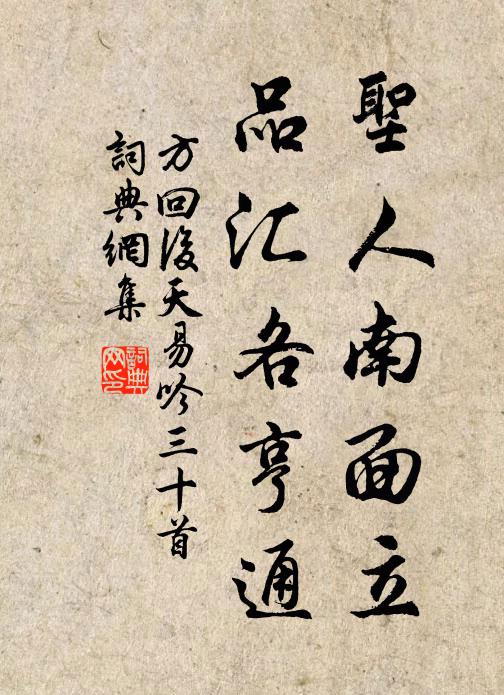 聖人南面立
品汇各亨通
方回後天易吟三十首
詞典網集
詞典
网印